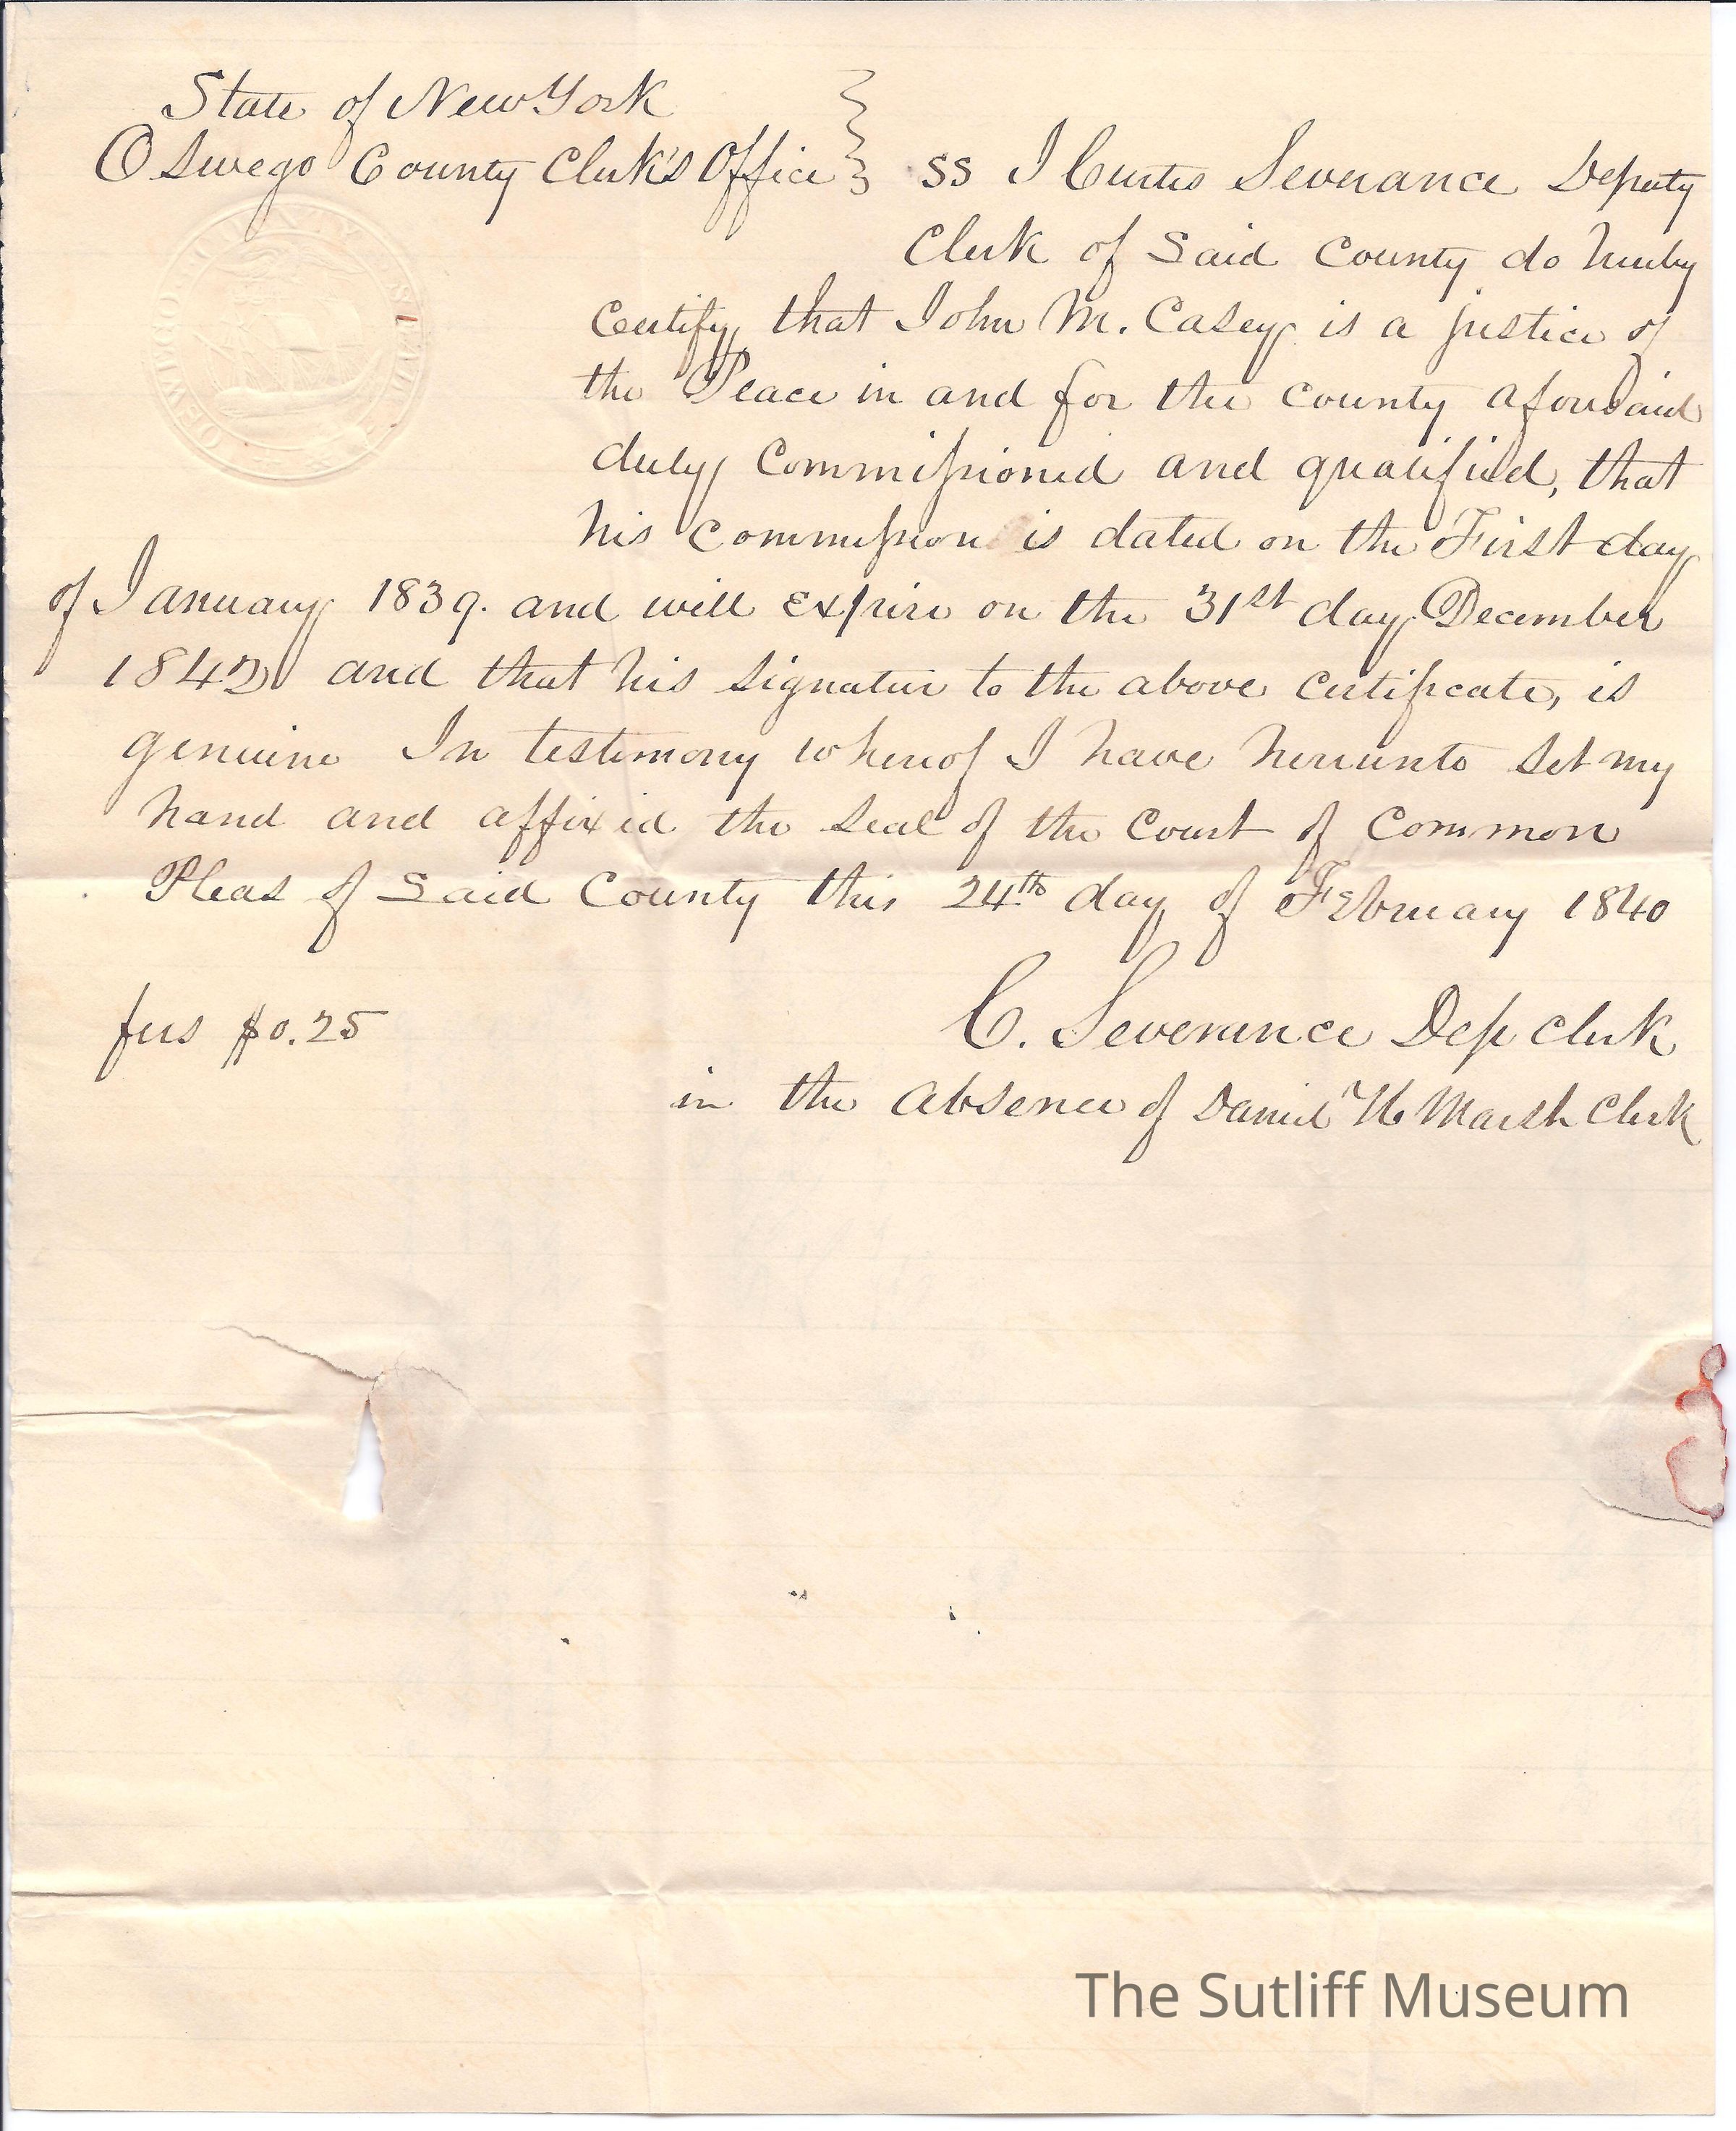 State of New York
Oswego County Clerk's Office } ss I Curtis Severance Deputy
Clerk of Said County do hereby
Certify that John M. Casey is a justice of
the Peace in and for the county aforesaid
duly Commissioned and qualified, that
his Commission is dated on the First day
of January 1839. and will expire on the 31st day December
1842 and that his signature to the above certificate, is
genuine In testimony whereof I have hereunto set my
hand and affixed the seal of the Court of Common
Pleas of Said County this 24th day of February 1840
fees $0.25
C. Severance Dep Clerk
in the absence of Daniel H Marsh Clerk
The Sutliff Museum